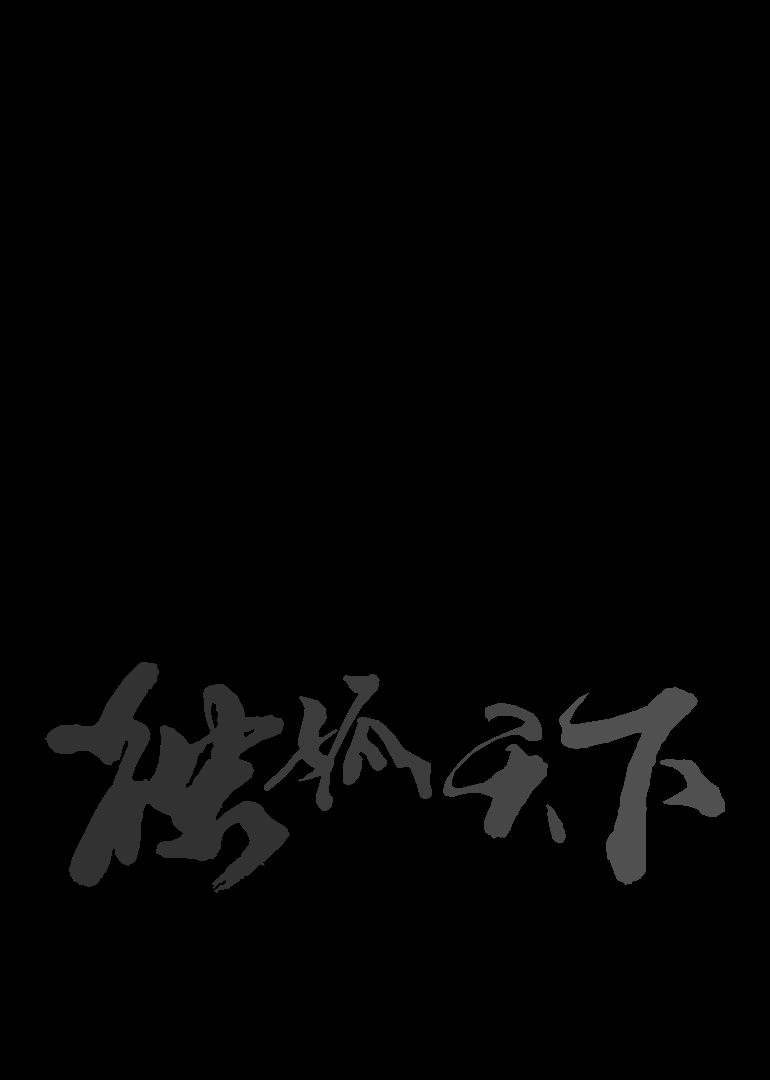 独孤天下